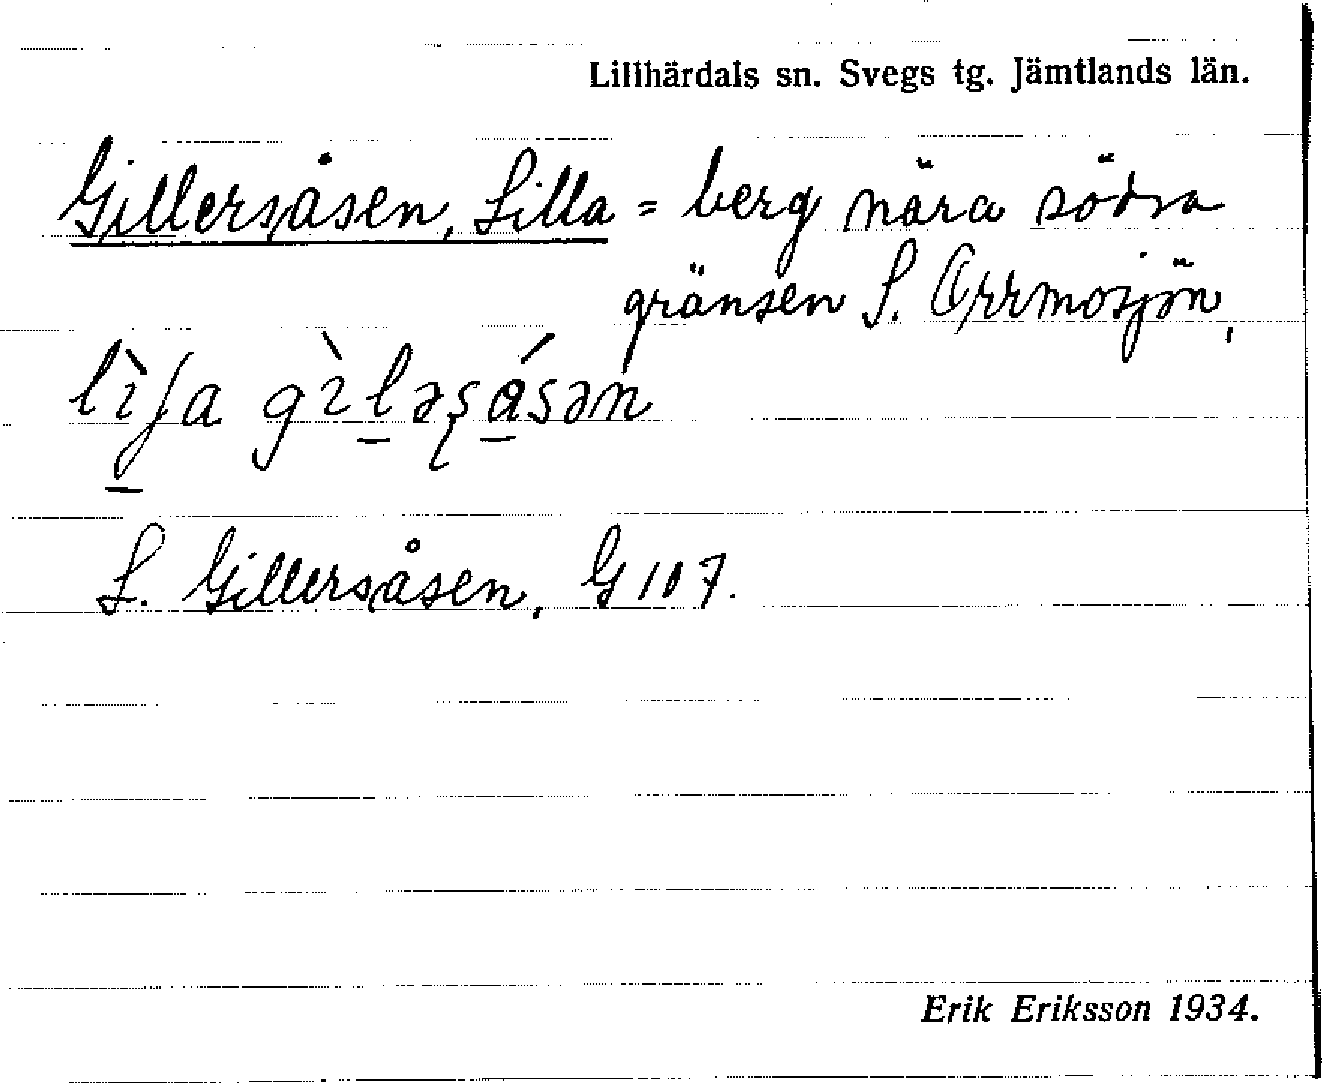 Lillhärdals sn. Svegs tg. Jämtlands län.
Gillersåsen, Lilla = berg nära södra
gränsen S. Orrmosjön,
L. Gillersåsen, G 107.
Erik Eriksson 1934.